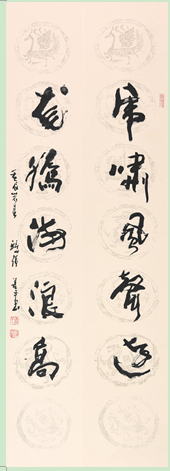 虎嘯風聲遠
龙騰海浪高